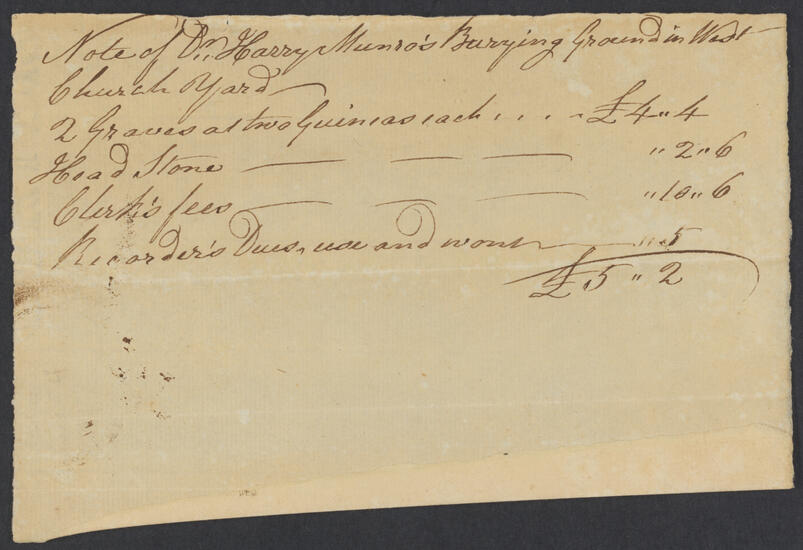 Note of Dr. Harry Munro's Burying Ground in West
Church Yard
2 Graves at two Guineas each . . . . £4 " 4
Head Stone — — — " 2 " 6
Clerk's fees — — — " 10 " 6
Recorder's Dues, use and wont — " " 5
£5 " 2